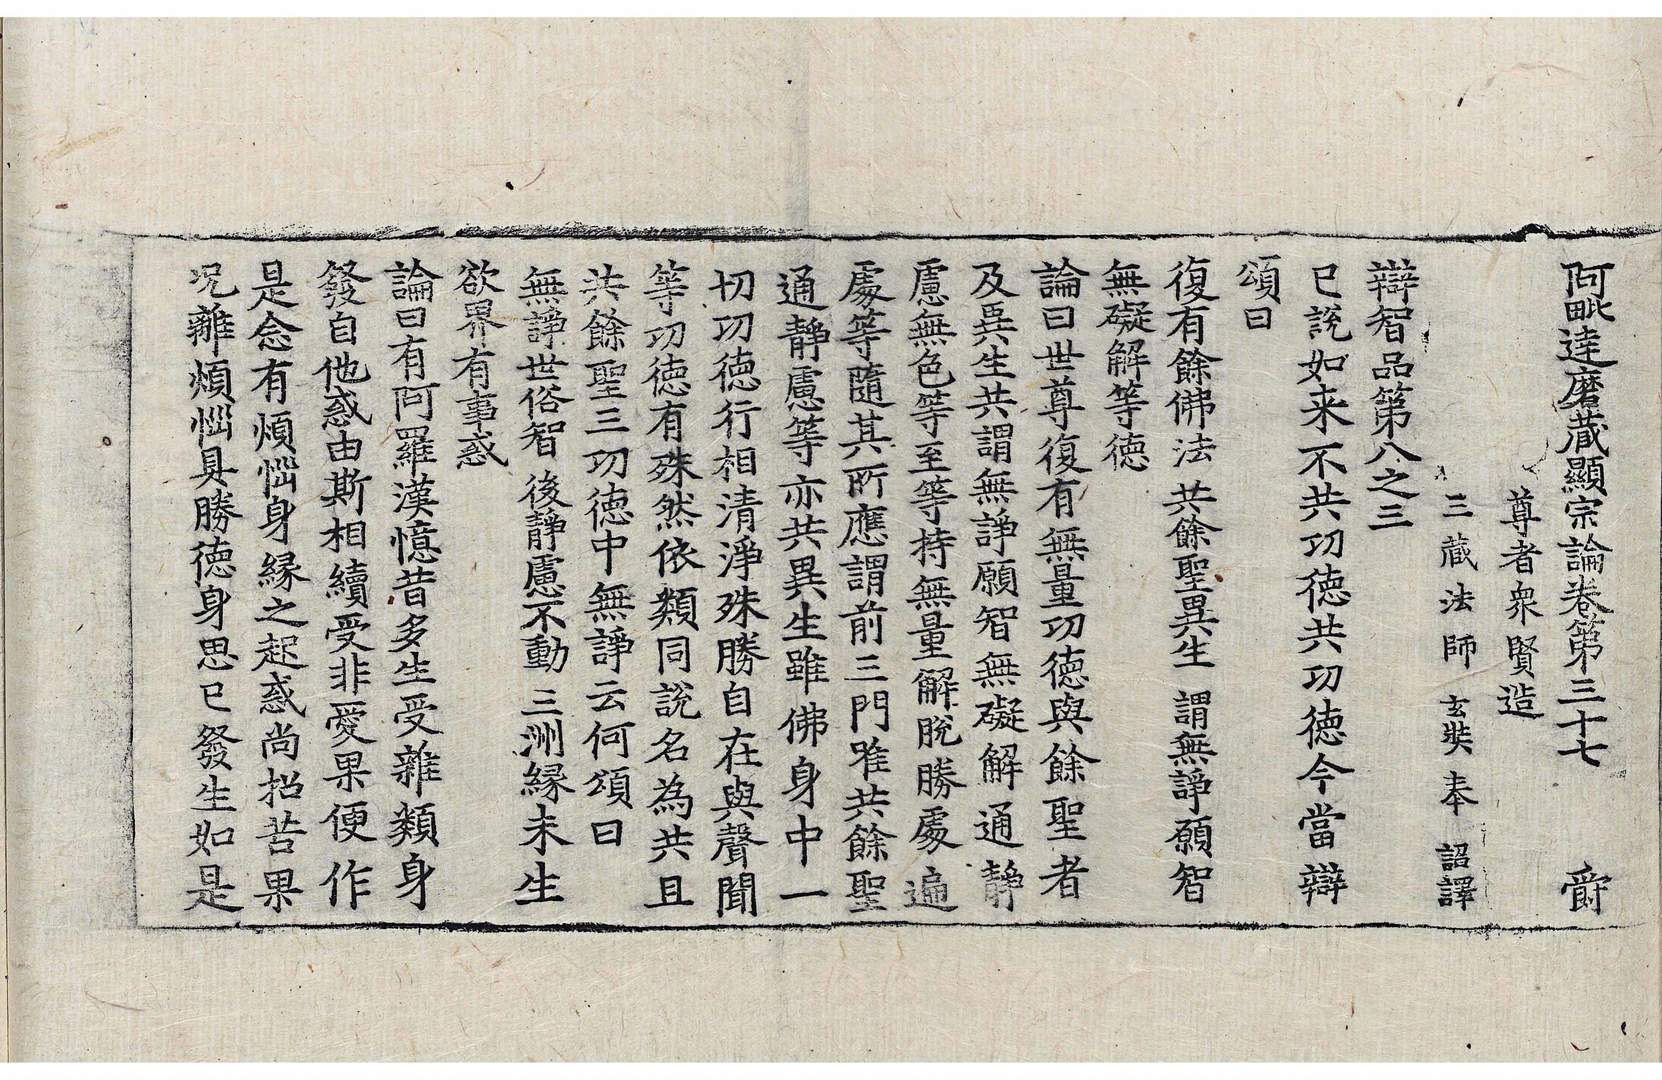 阿毗達磨藏顯宗論卷第三十七 爵
尊者衆賢造
三藏法師 玄奘奉 詔譯
辯智品第八之三
已說如来不共功德共功德今當辯
頌曰
復有餘佛法 共餘聖異生 謂無諍願智
無礙解等德
論曰世尊復有無量功德與餘聖者
及異生共謂無諍願智無礙解通靜
慮無色等至等持無量解脫勝處遍
處等隨其所應謂前三門唯共餘聖
通靜慮等亦共異生雖佛身中一
切功德行相清淨殊勝自在與聲聞
等功德有殊然依類同說名為共且
共餘聖三功德中無諍云何頌曰
無諍世俗智 後靜慮不動 三洲緣未生
欲界有事惑
論曰有阿羅漢憶昔多生受雜類身
發自他惑由斯相續受非愛果便作
是念有煩惱身緣之起惑尚招苦果
况離煩惱具勝德身思已發生如是